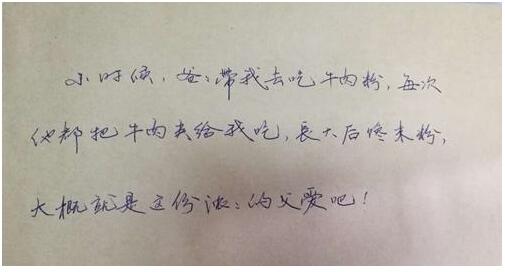 小时候，爸：带我去吃牛肉粉，每次
他都把牛肉夹给我吃，長大后疼米粉，
大概就是这份浓：的父爱吧！